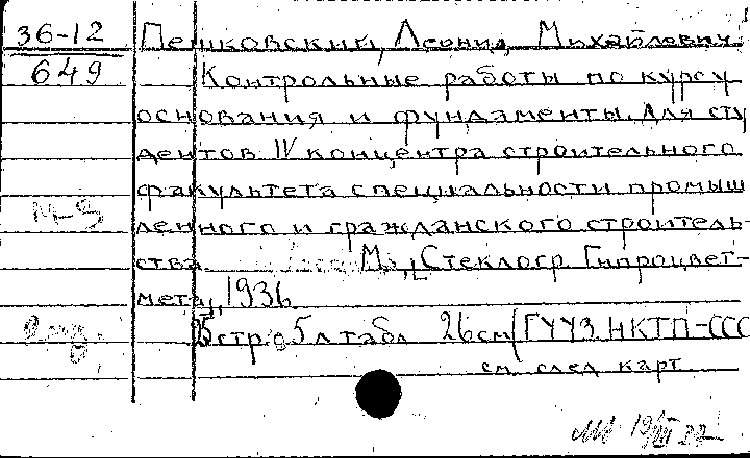 36-12
649
Пешковский, Леонид Михайлович.
Контрольные работы по курсу
основания и фундаменты. Для сту
дентов IV концентра строительного
факультета специальности промыш
ленного и гражданского строитель-
ства М., Стеклогр. Гипроцвет-
мета, 1936.
стр. 5 л табл 26 см (ГУУЗ. НКТП-ССС
см. след карт